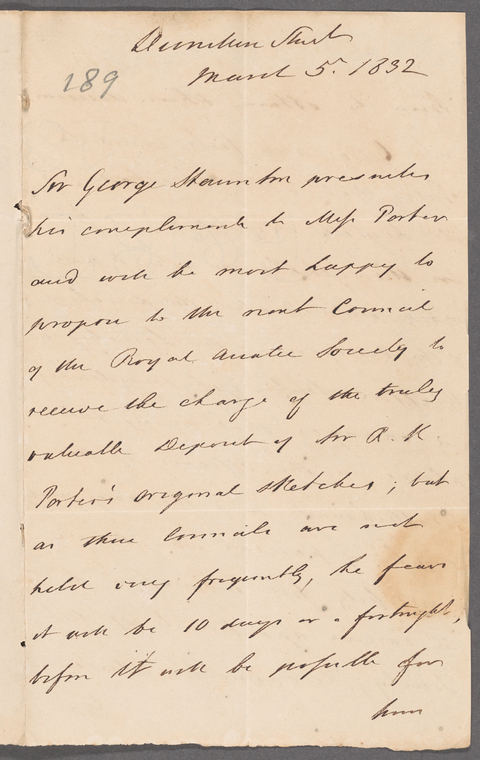 Devonshire Street
March 5. 1832
189
Sir George Staunton presents
his compliments to Miss Porter
and will be most happy to
propose to the next Council
of the Royal Asiatic Society to
receive the charge of the truly
valuable Deposit of Sir R. K.
Porter's original sketches; but
as these Councils are not
held very frequently, he fears
it will be 10 days or a fortnight,
before it will be possible for
him